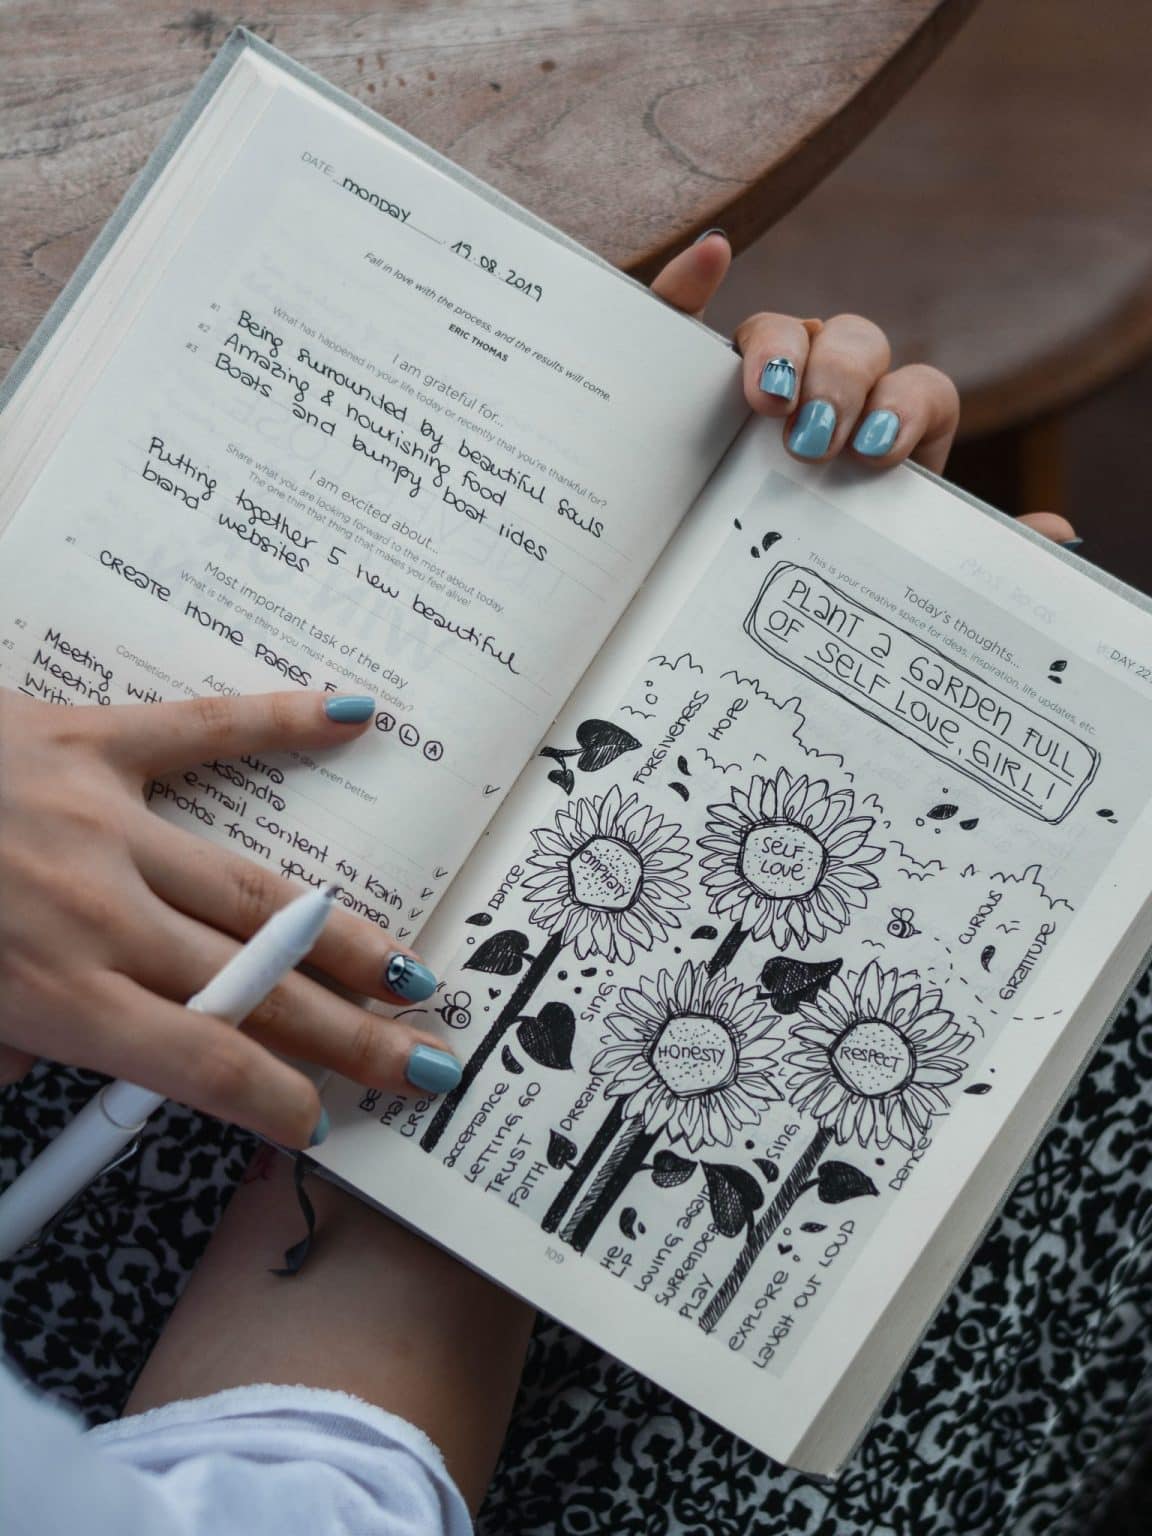 DATE monday, 19.08.2019
Fall in love with the process, and the results will come.
ERIC THOMAS
I am grateful for...
What has happened in your life today or recently that you're thankful for?
#1 Being surrounded by beautiful souls
#2 Amazing & nourishing food
#3 Boats and bumpy boat rides
I am excited about...
Share what you are looking forward to the most about today.
The one thin that thing that makes you feel alive!
Putting together 5 new beautiful
brand websites
Most important task of the day
What is the one thing you must accomplish today?
#1 create Home pages
A L A
Completion of the
day even better!
#2 Meeting with
#3 Meeting
e-mail content for Karin
photos from your camera
DAY 22
Today's thoughts...
This is your creative space for ideas, inspiration, life updates, etc.
PLANT a GaRDEN FULL
OF SELF LOVE, GIRL!
FORGIVENESS
HOPE
EMPHATY
SELF
LOVE
CURIOUS
GRATITUDE
Dance
SING
HONESTY
RESPECT
acceptance
LETTING GO
TRUST
FaITH
DREaM
SING
Dance
HE
LP
LOVING again
SURRENDER
PLAY
EXPLORE
LaUGH OUT LOUD
109